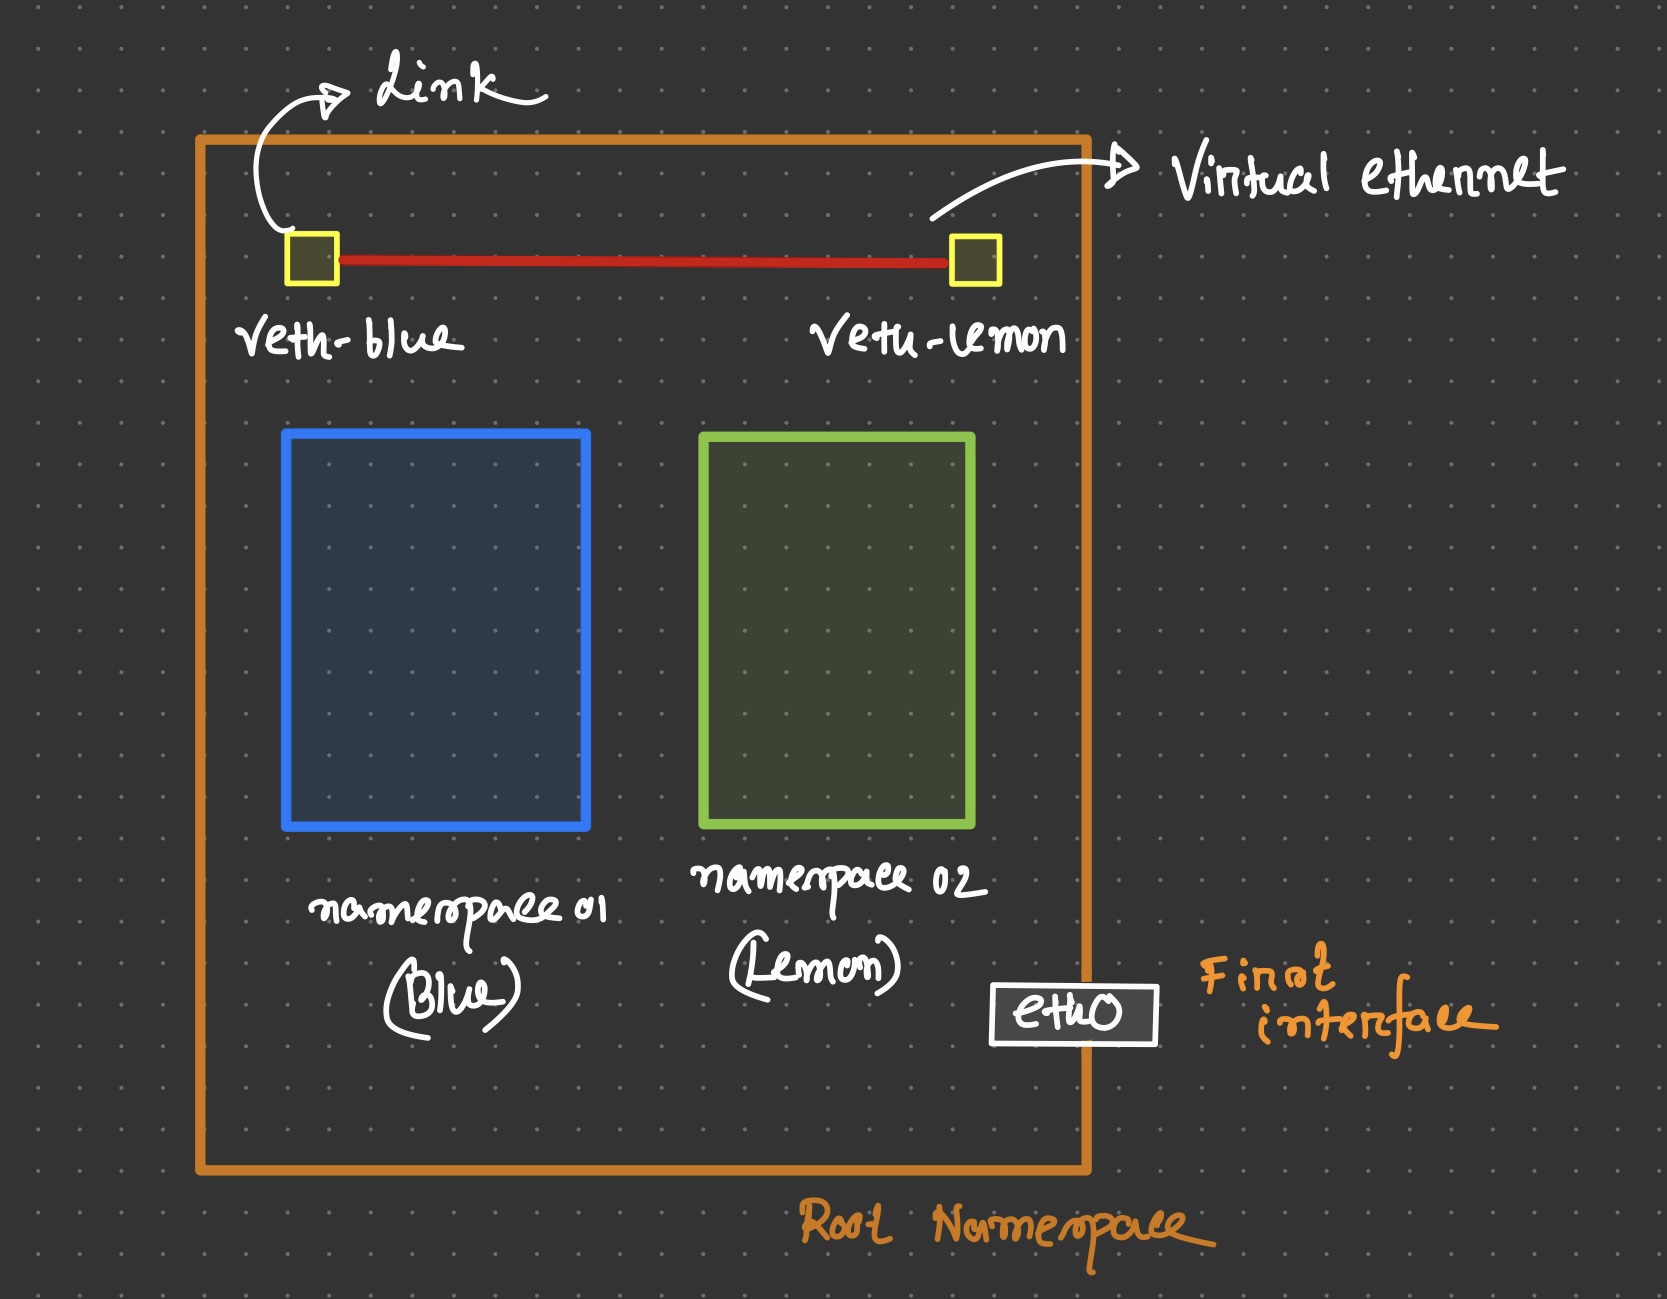 Link
Virtual ethernet
Veth-blue
Veth-lemon
namespace 01
(Blue)
namespace 02
(Lemon)
eth0
First
interface
Root Namespace